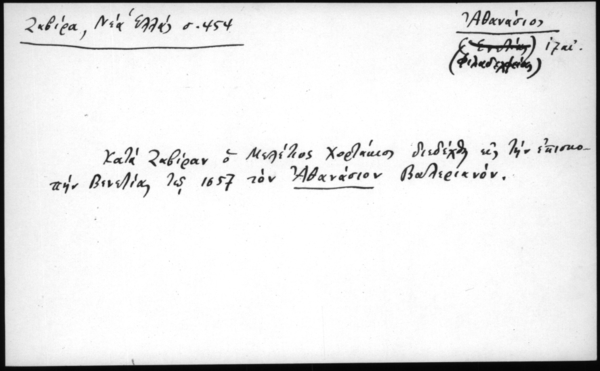 Ζαβίρα, Νέα Ἑλλάς σ. 454
Ἀθανάσιος
(Βενετίας)
(Φιλαδελφείας)
Κατά Ζαβίραν ὁ Μελέτιος Χορτάκιος διεδέχθη εἰς τήν ἐπισκο-
πήν Βενετίας τῷ 1657 τόν Ἀθανάσιον Βαλεριανόν.